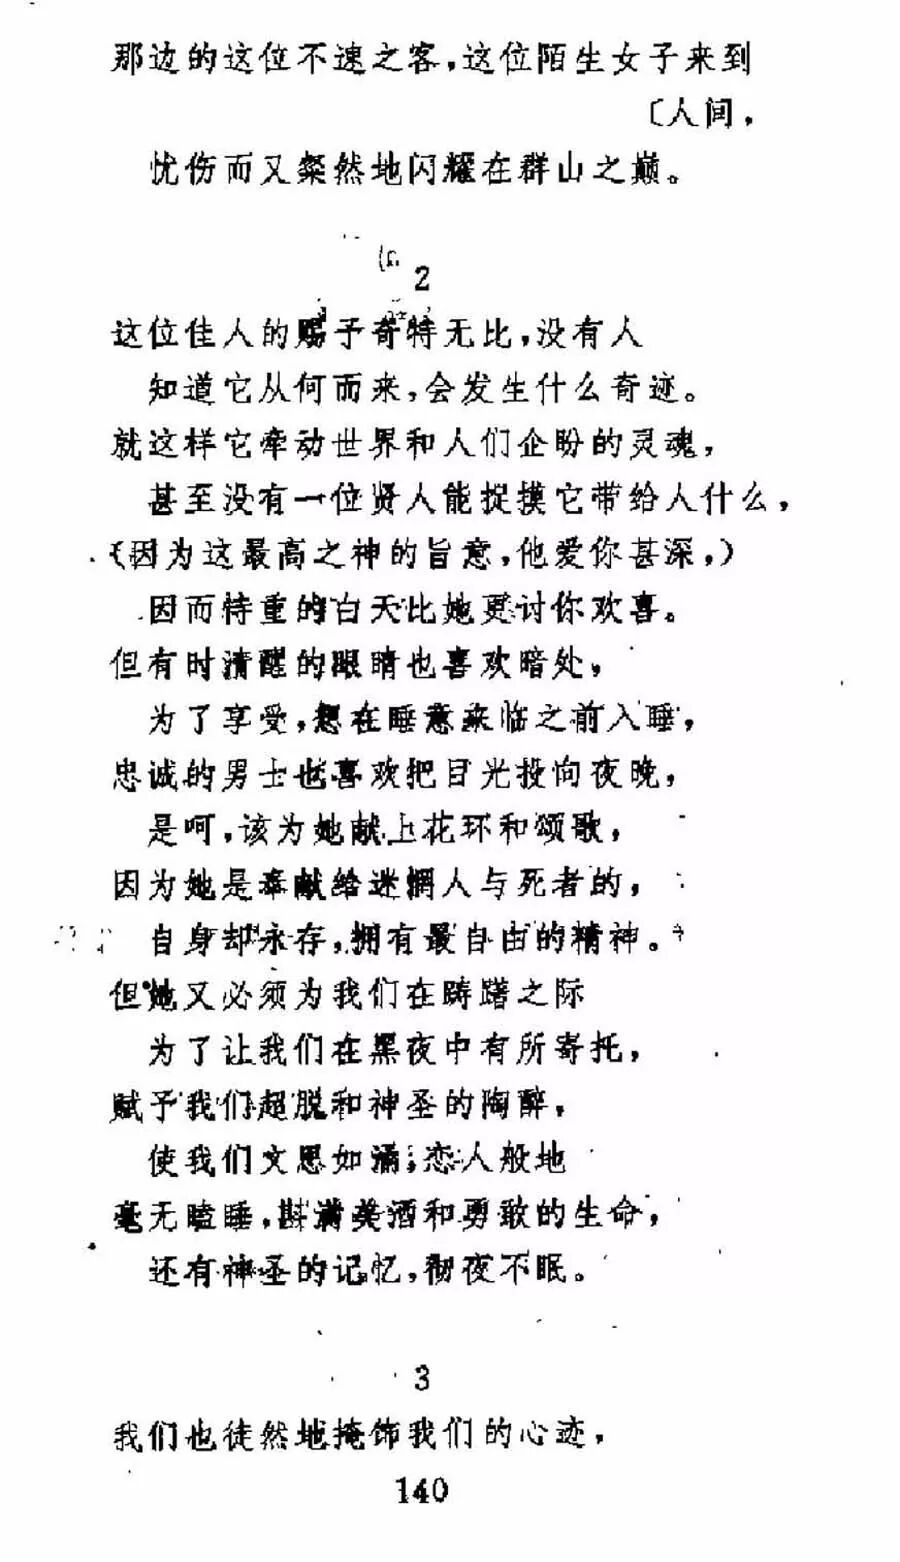 那边的这位不速之客，这位陌生女子来到
〔人间，
忧伤而又粲然地闪耀在群山之巅。
2
这位佳人的赐予奇特无比，没有人
知道它从何而来，会发生什么奇迹。
就这样它牵动世界和人们企盼的灵魂，
甚至没有一位贤人能捉摸它带给人什么，
(因为这最高之神的旨意，他爱你甚深，)
因而持重的白天比她更讨你欢喜。
但有时清醒的眼睛也喜欢暗处，
为了享受，想在睡意来临之前入睡，
忠诚的男士也喜欢把目光投向夜晚，
是呵，该为她献上花环和颂歌，
因为她是奉献给迷惘人与死者的，
自身却永存，拥有最自由的精神。
但她又必须为我们在踌躇之际
为了让我们在黑夜中有所寄托，
赋予我们超脱和神圣的陶醉，
使我们文思如涌，恋人般地
毫无瞌睡，斟满美酒和勇敢的生命，
还有神圣的记忆，彻夜不眠。
3
我们也徒然地掩饰我们的心迹，
140